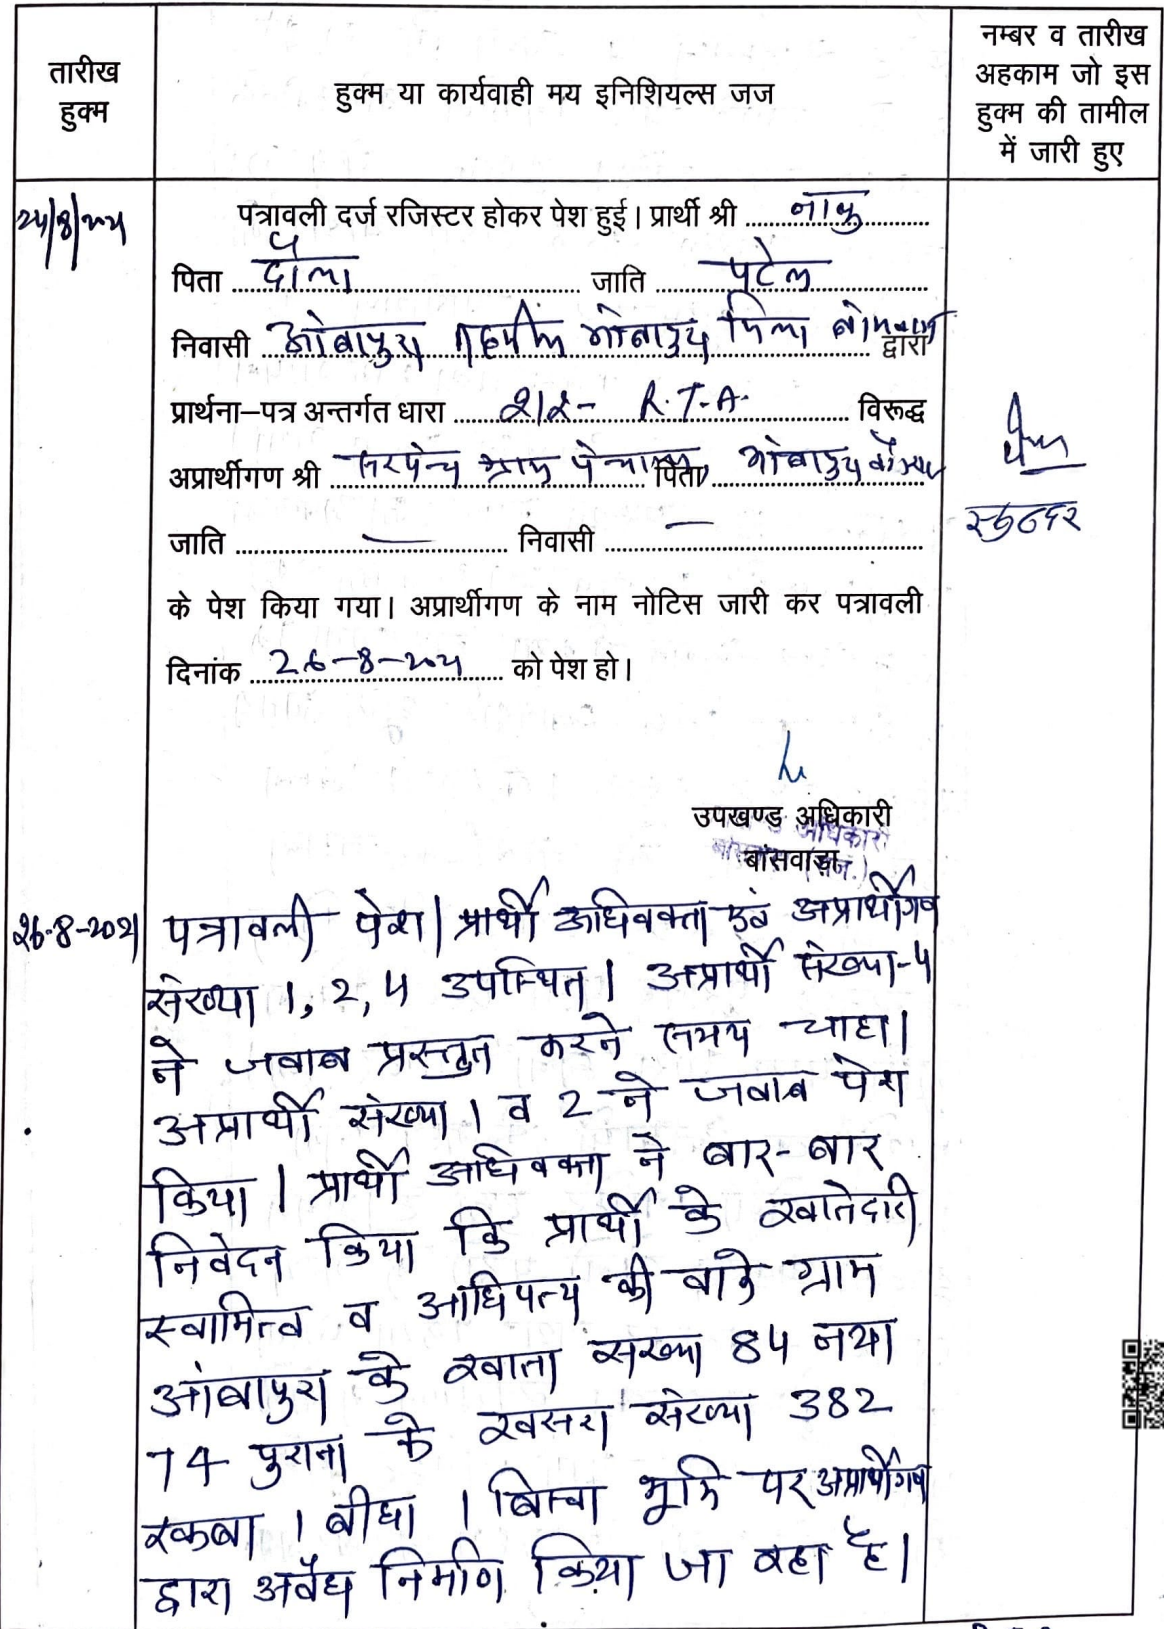 तारीख
हुक्म
हुक्म या कार्यवाही मय इनिशियल्स जज
नम्बर व तारीख
अहकाम जो इस
हुक्म की तामील
में जारी हुए
पत्रावली दर्ज रजिस्टर होकर पेश हुई। प्रार्थी श्री नाकु
पिता दौला जाति पटेल
निवासी आंबापुरा तहसील आंबापुरा जिला द्वारा
प्रार्थना–पत्र अन्तर्गत धारा 212- R.T.A. विरूद्ध
अप्रार्थीगण श्री सरपंच ग्राम पंचायत, पिता आंबापुरा
जाति — निवासी —
के पेश किया गया। अप्रार्थीगण के नाम नोटिस जारी कर पत्रावली
दिनांक 26-8-2021 को पेश हो।
उपखण्ड अधिकारी
बांसवाड़ा
26-8-2021 पत्रावली पेश। प्रार्थी अधिवक्ता एवं अप्रार्थीगण
संख्या 1, 2, 4 उपस्थित। अप्रार्थी संख्या-4
ने जवाब प्रस्तुत करने समय चाहा।
अप्रार्थी संख्या 1 व 2 ने जवाब पेश
किया। प्रार्थी अधिवक्ता ने बार-बार
निवेदन किया कि प्रार्थी के खातेदारी
स्वामित्व व आधिपत्य की वाके ग्राम
आंबापुरा के खाता संख्या 84 नया
74 पुराना के खसरा संख्या 382
रकबा 1 बीघा 1 बिस्वा भूमि पर अप्रार्थीगण
द्वारा अवैध निर्माण किया जा रहा है।